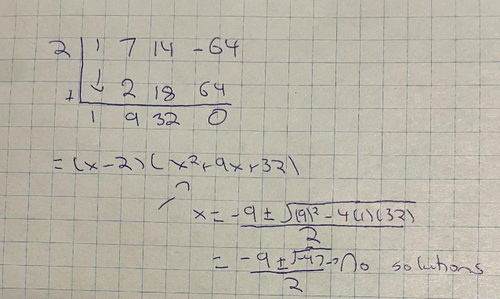 2 | 1 7 14 -64
+ ↓ 2 18 64
1 9 32 0
= (x-2)(x²+9x+32)
x = -9 ± √(9)² - 4(1)(32) / 2
= -9 ± √-47 / 2 → No solutions